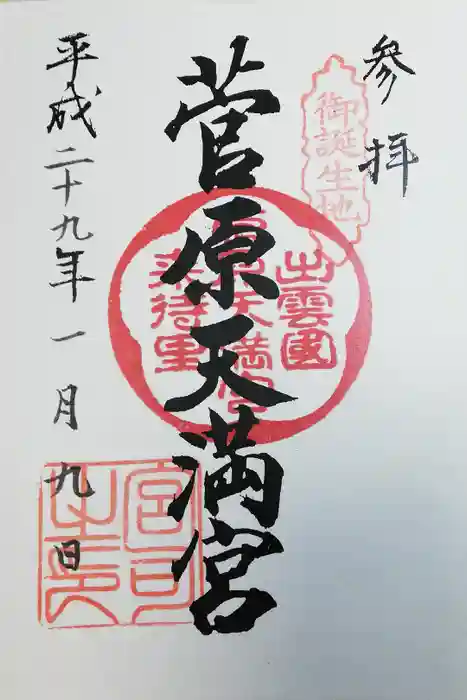 参拝
御誕生地
菅原天満宮
出雲國
菅原天満宮
来待里
平成二十九年一月九日
宮司之印